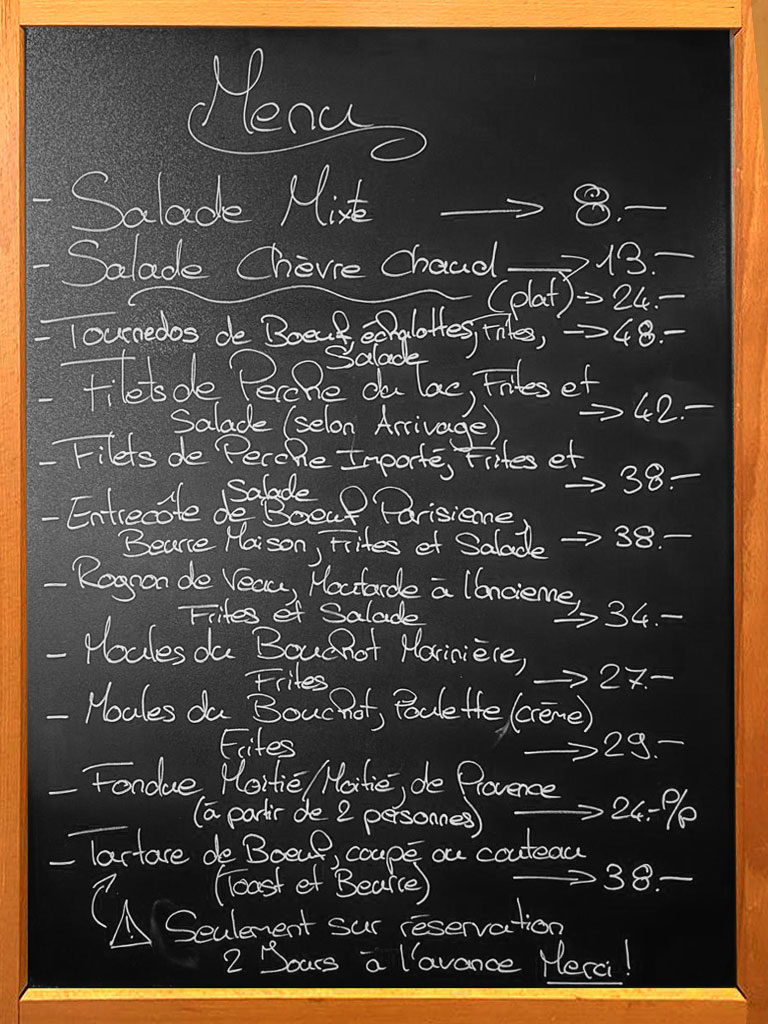 Menu
- Salade Mixte → 8.-
- Salade Chèvre Chaud → 13.-
(plat) → 24.-
- Tournedos de Boeuf, échalottes, Frites, → 48.-
Salade
- Filets de Perche du lac, Frites et
Salade (selon Arrivage) → 42.-
- Filets de Perche Importé, Frites et
Salade → 38.-
- Entrecôte de Boeuf Parisienne,
Beurre Maison, Frites et Salade → 38.-
- Rognon de Veau, Moutarde à l'ancienne,
Frites et Salade → 34.-
- Moules du Bouchot Marinière,
Frites → 27.-
- Moules du Bouchot, Poulette (crème)
Frites → 29.-
- Fondue Moitié/Moitié, de Provence
(à partir de 2 personnes) → 24.- P/p
- Tartare de Boeuf, coupé au couteau
(Toast et Beurre) → 38.-
⚠ Seulement sur réservation
2 Jours à l'avance Merci!